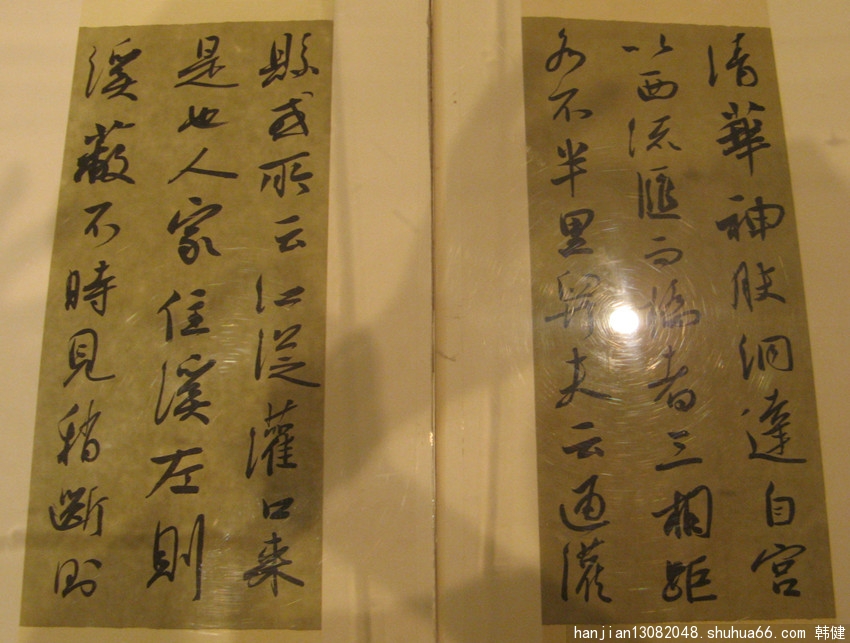 清華神肤洞達自宮
以西流匯而橋者三相距
各不半里舁夫云通灌
縣或所云江從灌口来
是也人家住溪左則
溪蔽不時見稍斷則
hanjian13082048.shuhua66.com 韩健